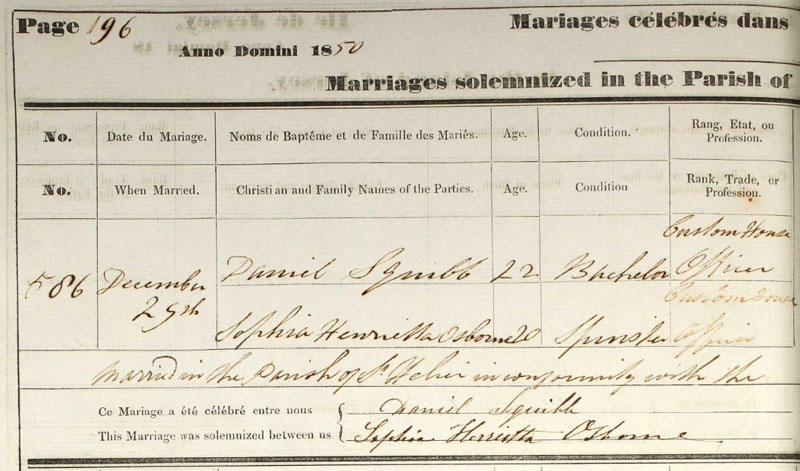 Page 196
Mariages célébrés dans
Anno Domini 1850
Marriages solemnized in the Parish of
No. Date du Mariage. Noms de Baptême et de Famille des Mariés. Age. Condition. Rang, Etat, ou Profession.
No. When Married. Christian and Family Names of the Parties. Age. Condition Rank, Trade, or Profession.
586 December 29th Daniel Squibb 22 Bachelor Custom House Officer
Sophia Henrietta Osborne 20 Spinster Custom House Officer
Married in the Parish of St Helier in conformity with the
Ce Mariage a été célébré entre nous Daniel Squibb
This Marriage was solemnized between us Sophia Henrietta Osborne